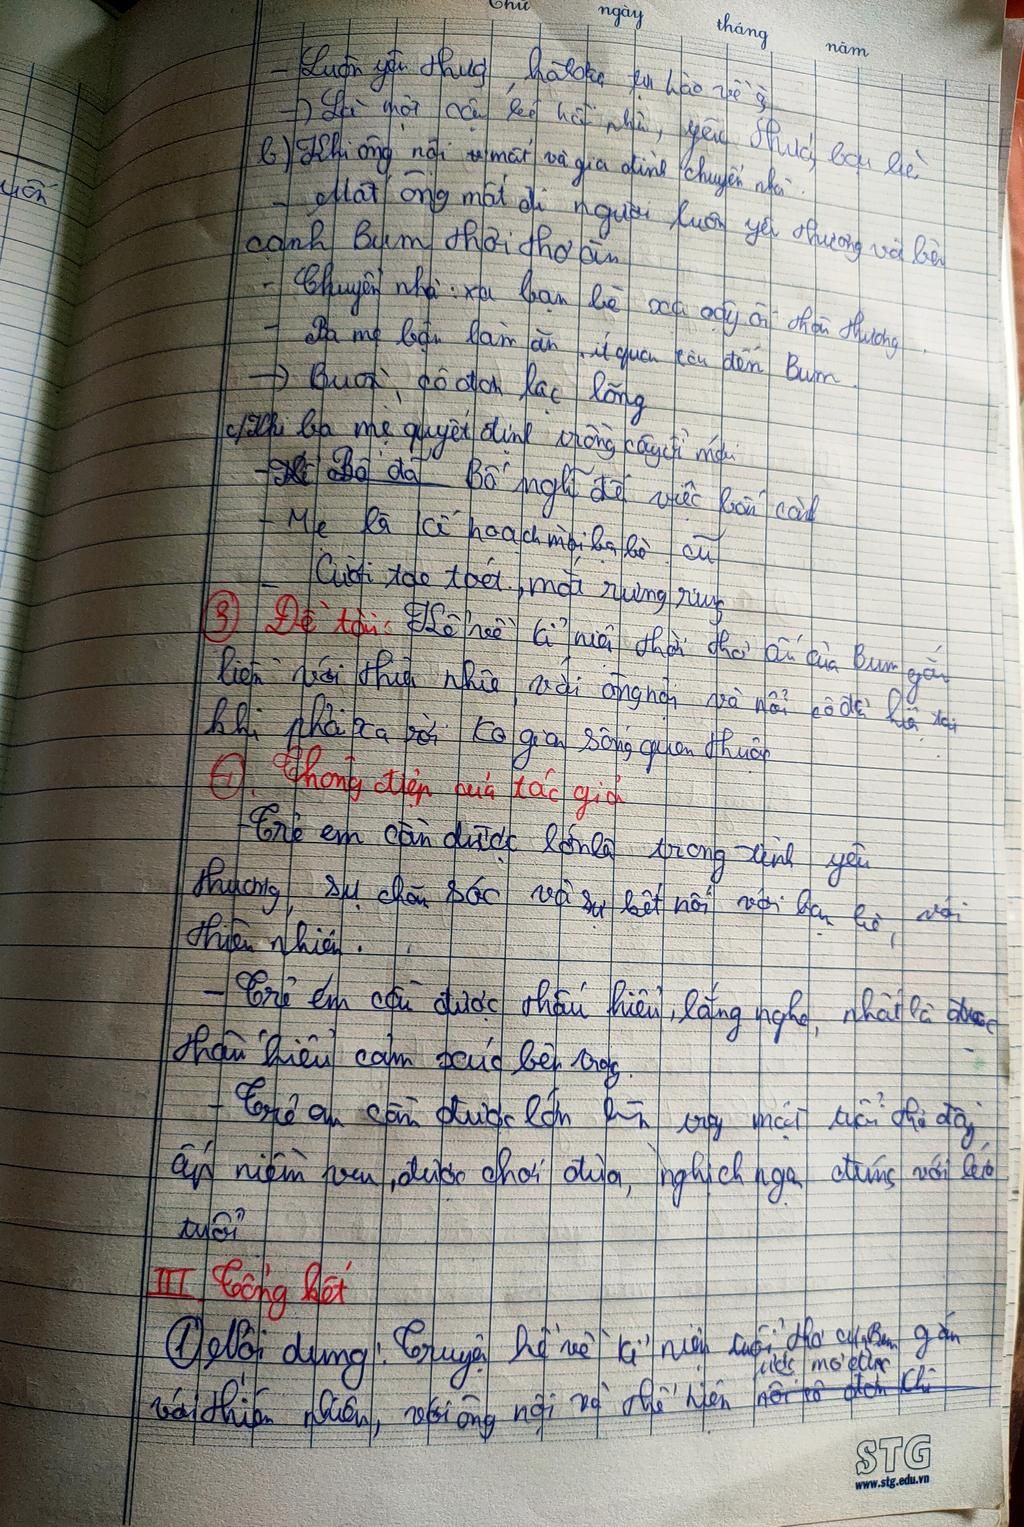 Thứ ngày tháng năm
- Luôn yêu thương, tự hào về
→ Là một cậu bé hồn nhiên, yêu thương bạn bè
b) Khi ông nội mất và gia đình chuyển nhà.
- Mất ông mất đi người luôn yêu thương và bên
cạnh Bum thời thơ ấu
- Chuyển nhà: xa bạn bè xa cây ổi thân thương.
- Ba mẹ bận làm ăn, ít quan tâm đến Bum.
→ Buồn, cô đơn lạc lõng
c) Khi ba mẹ quyết định trồng cây ổi mới
- Bố nghĩ đến việc
- Mẹ kế hoạch mời bạn bè cũ
- Cười toe toét, mắt rưng rưng
③ Đề tài: kể về kỉ niệm thời thơ ấu của Bum gắn
liền với thiên nhiên, với ông nội và nỗi cô đơn
khi phải xa rời ko gian sống quen thuộc
④. Thông điệp của tác giả
- Trẻ em cần được lớn lên trong tình yêu
thương, sự chăm sóc và sự kết nối với bạn bè, với
thiên nhiên.
- Trẻ em cần được thấu hiểu, lắng nghe, nhất là được
thấu hiểu cảm xúc bên trong.
- Trẻ em cần được lớn lên trong một tuổi thơ đầy
ắp niềm vui, được chơi đùa, nghịch ngợm đúng với lứa
tuổi
III. Tổng kết
① Nội dung: Truyện kể về kỉ niệm tuổi thơ của Bum gắn
ước mơ được
với thiên nhiên, với ông nội và thể hiện
STG
www.stg.edu.vn